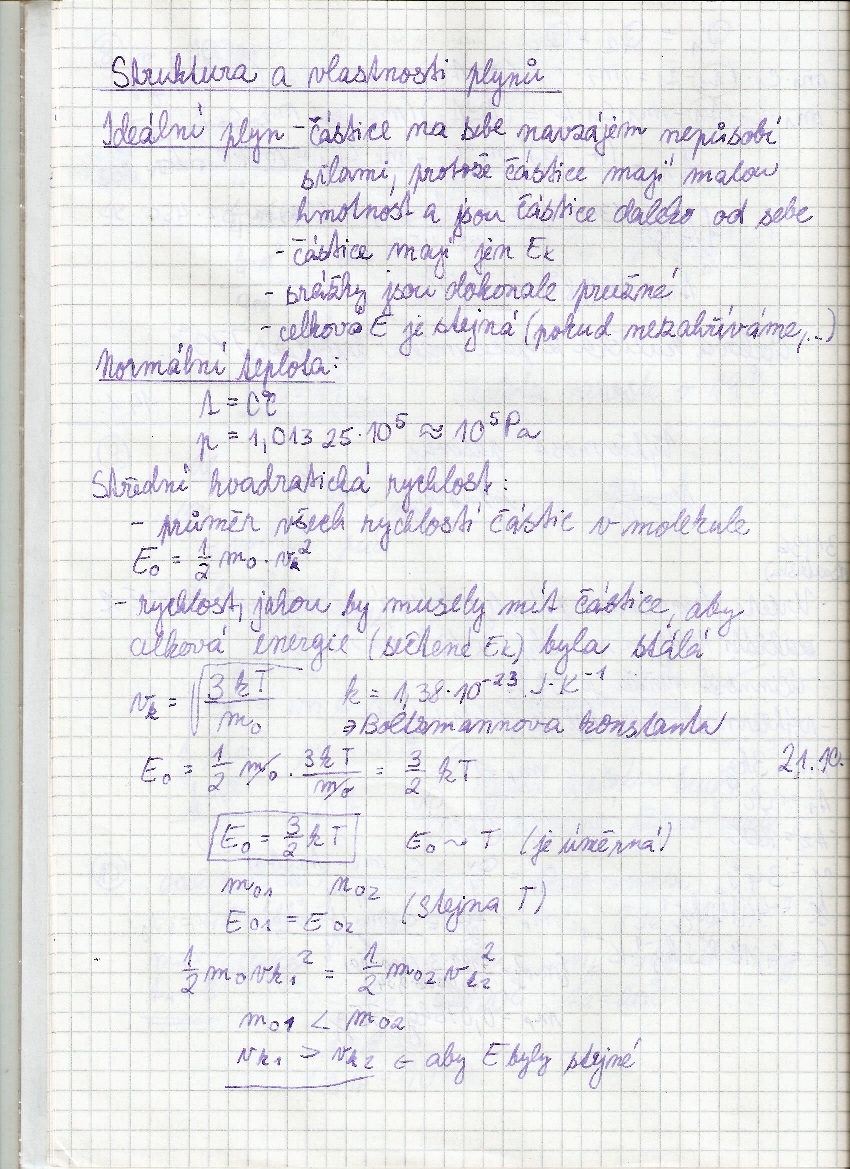 Struktura a vlastnosti plynů
Ideální plyn - částice na sebe navzájem nepůsobí
silami, protože částice mají malou
hmotnost a jsou částice daleko od sebe
- částice mají jen Ek
- srážky jsou dokonale pružné
- celková E je stejná (pokud nezahříváme,..)
Normální teplota:
t = 0°C
p = 1,01325·10⁵ ≈ 10⁵ Pa
Střední kvadratická rychlost:
- průměr všech rychlostí částic v molekule
E₀ = 1/2 m₀ · vₖ²
- rychlost, jakou by musely mít částice, aby
celková energie (sečtené Ek) byla stálá
vₖ = √(3kT/m₀) k = 1,38·10⁻²³ J·K⁻¹
→ Boltzmannova konstanta
E₀ = 1/2 m₀ · 3kT/m₀ = 3/2 kT 21.10.
E₀ = 3/2 kT E₀ ~ T (je úměrná)
m₀₁ m₀₂
E₀₁ = E₀₂ (stejna T)
1/2 m₀vₖ₁² = 1/2 m₀₂vₖ₂²
m₀₁ < m₀₂
vₖ₁ > vₖ₂ ← aby E byly stejné